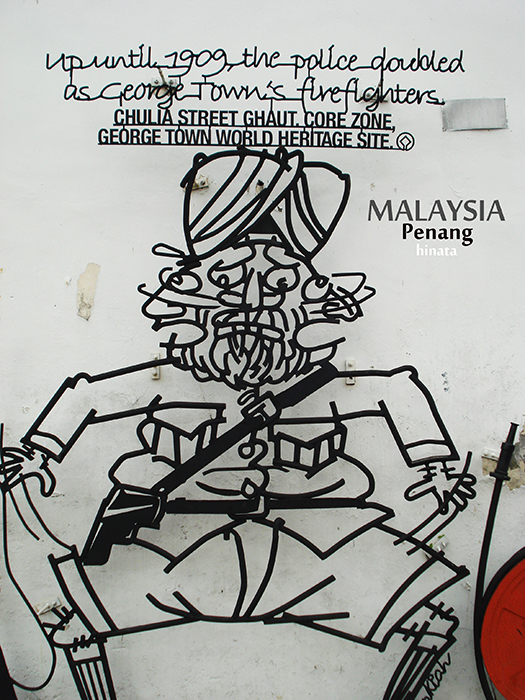 up until 1909, the police doubled
as George Town's firefighters.
CHULIA STREET GHAUT, CORE ZONE,
GEORGE TOWN WORLD HERITAGE SITE.
MALAYSIA
Penang
hinata